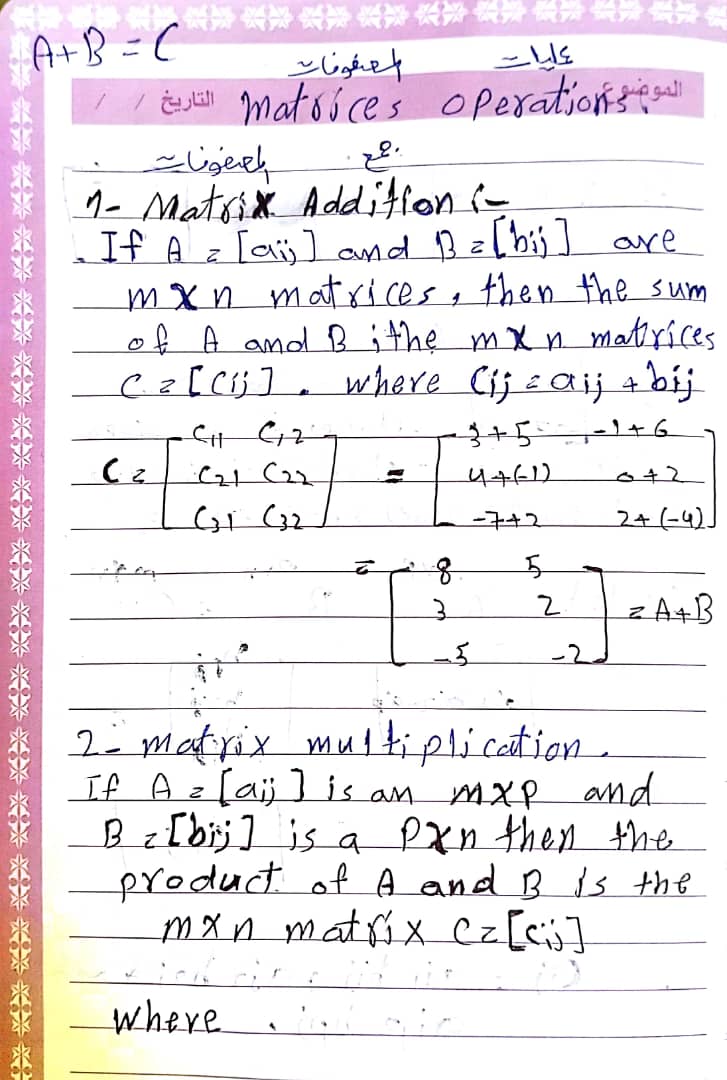 A+B = C
عمليات المصفوفات
الموضوع التاريخ / /
Matrices operations.
جمع المصفوفات
1- Matrix Addition :-
If A = [aij] and B = [bij] are
m x n matrices, then the sum
of A and B ; the m x n matrices
C = [Cij]. where Cij = aij + bij
C = [ C11 C12 ] = [ 3+5 -1+6 ]
[ C21 C22 ] [ 4+(-1) 0+2 ]
[ C31 C32 ] [ -7+2 2+(-4) ]
= [ 8 5 ]
[ 3 2 ] = A+B
[ -5 -2 ]
2- matrix multiplication.
If A = [aij] is an mxp and
B = [bij] is a Pxn then the
product of A and B is the
mxn matrix C = [cij]
where